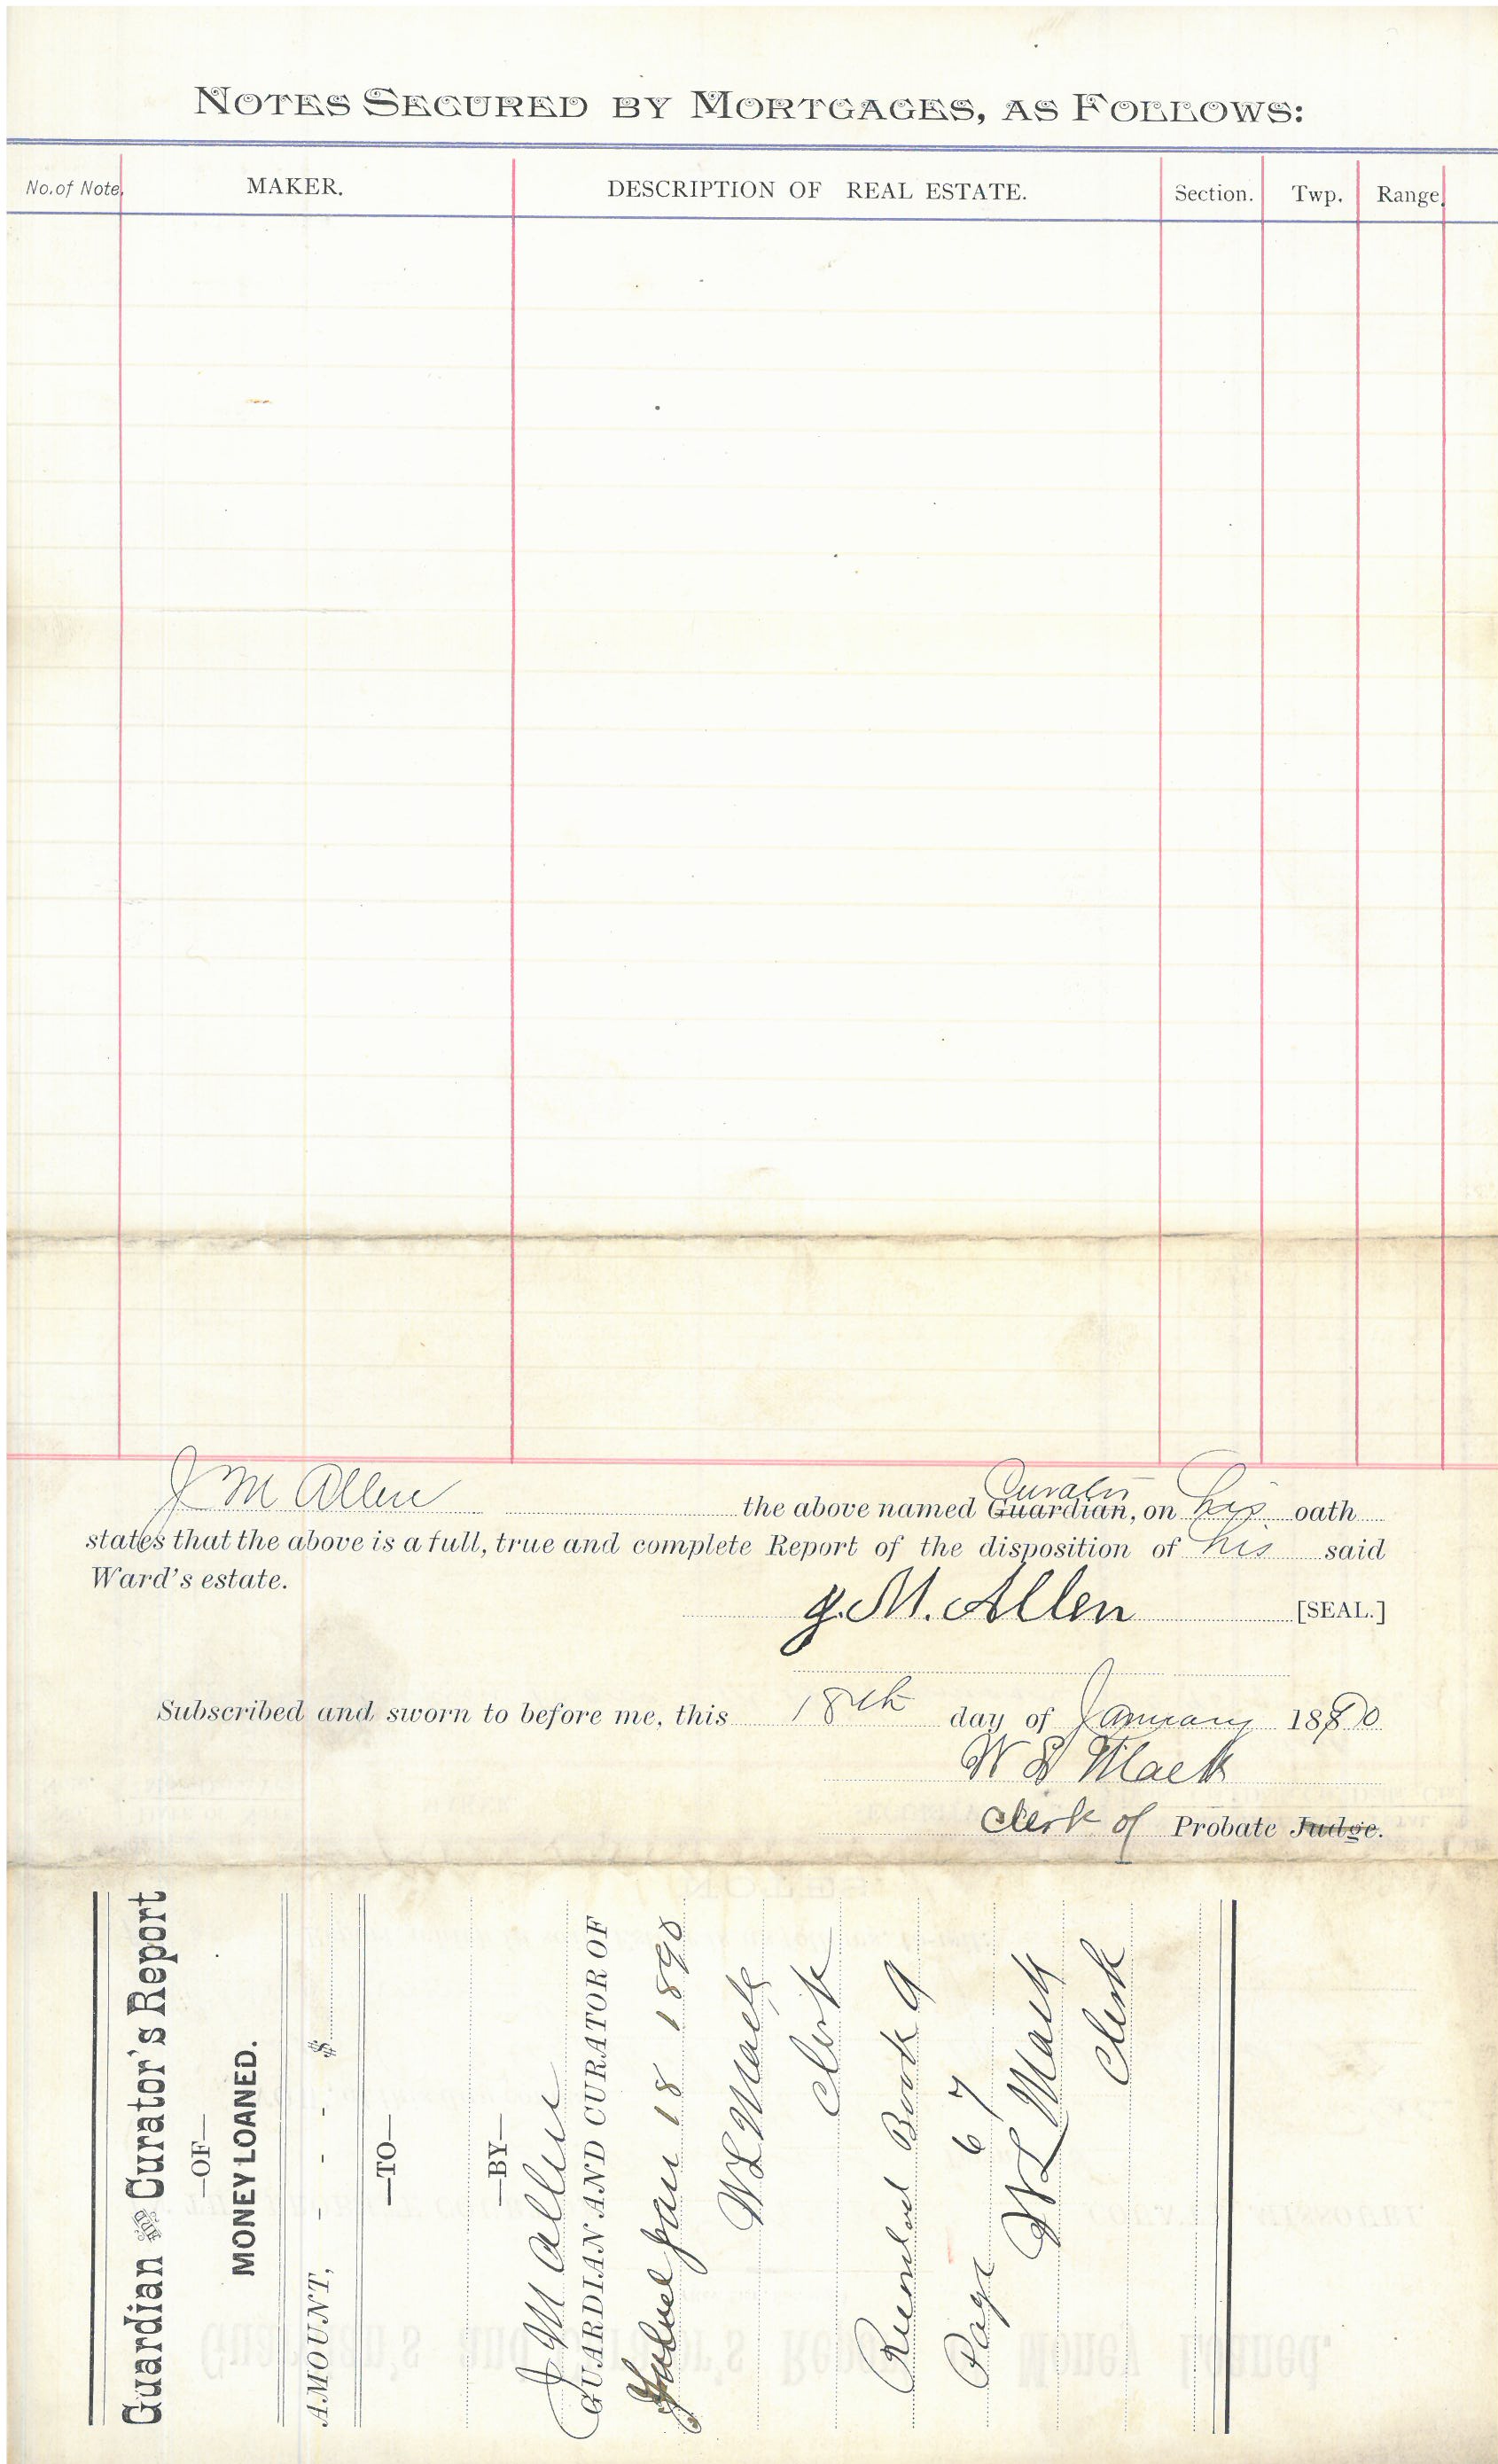 NOTES SECURED BY MORTGAGES, AS FOLLOWS:
No. of Note, MAKER. DESCRIPTION OF REAL ESTATE. Section. Twp. Range
J M Allen the above named Guardian, Curator on his oath
states that the above is a full, true and complete Report of the disposition of his said
Ward's estate.
J. M. Allen [SEAL.]
Subscribed and sworn to before me, this 18th day of January 1890
W L Mack
Clerk of Probate Judge.
Guardian and Curator's Report
—OF—
MONEY LOANED.
AMOUNT, - - - $
—TO—
—BY—
J M Allen
GUARDIAN AND CURATOR OF
Filed Jan 18 1890
W L Mack
Clerk
Recorded Book 9
Page 67
W L Mack
Clerk